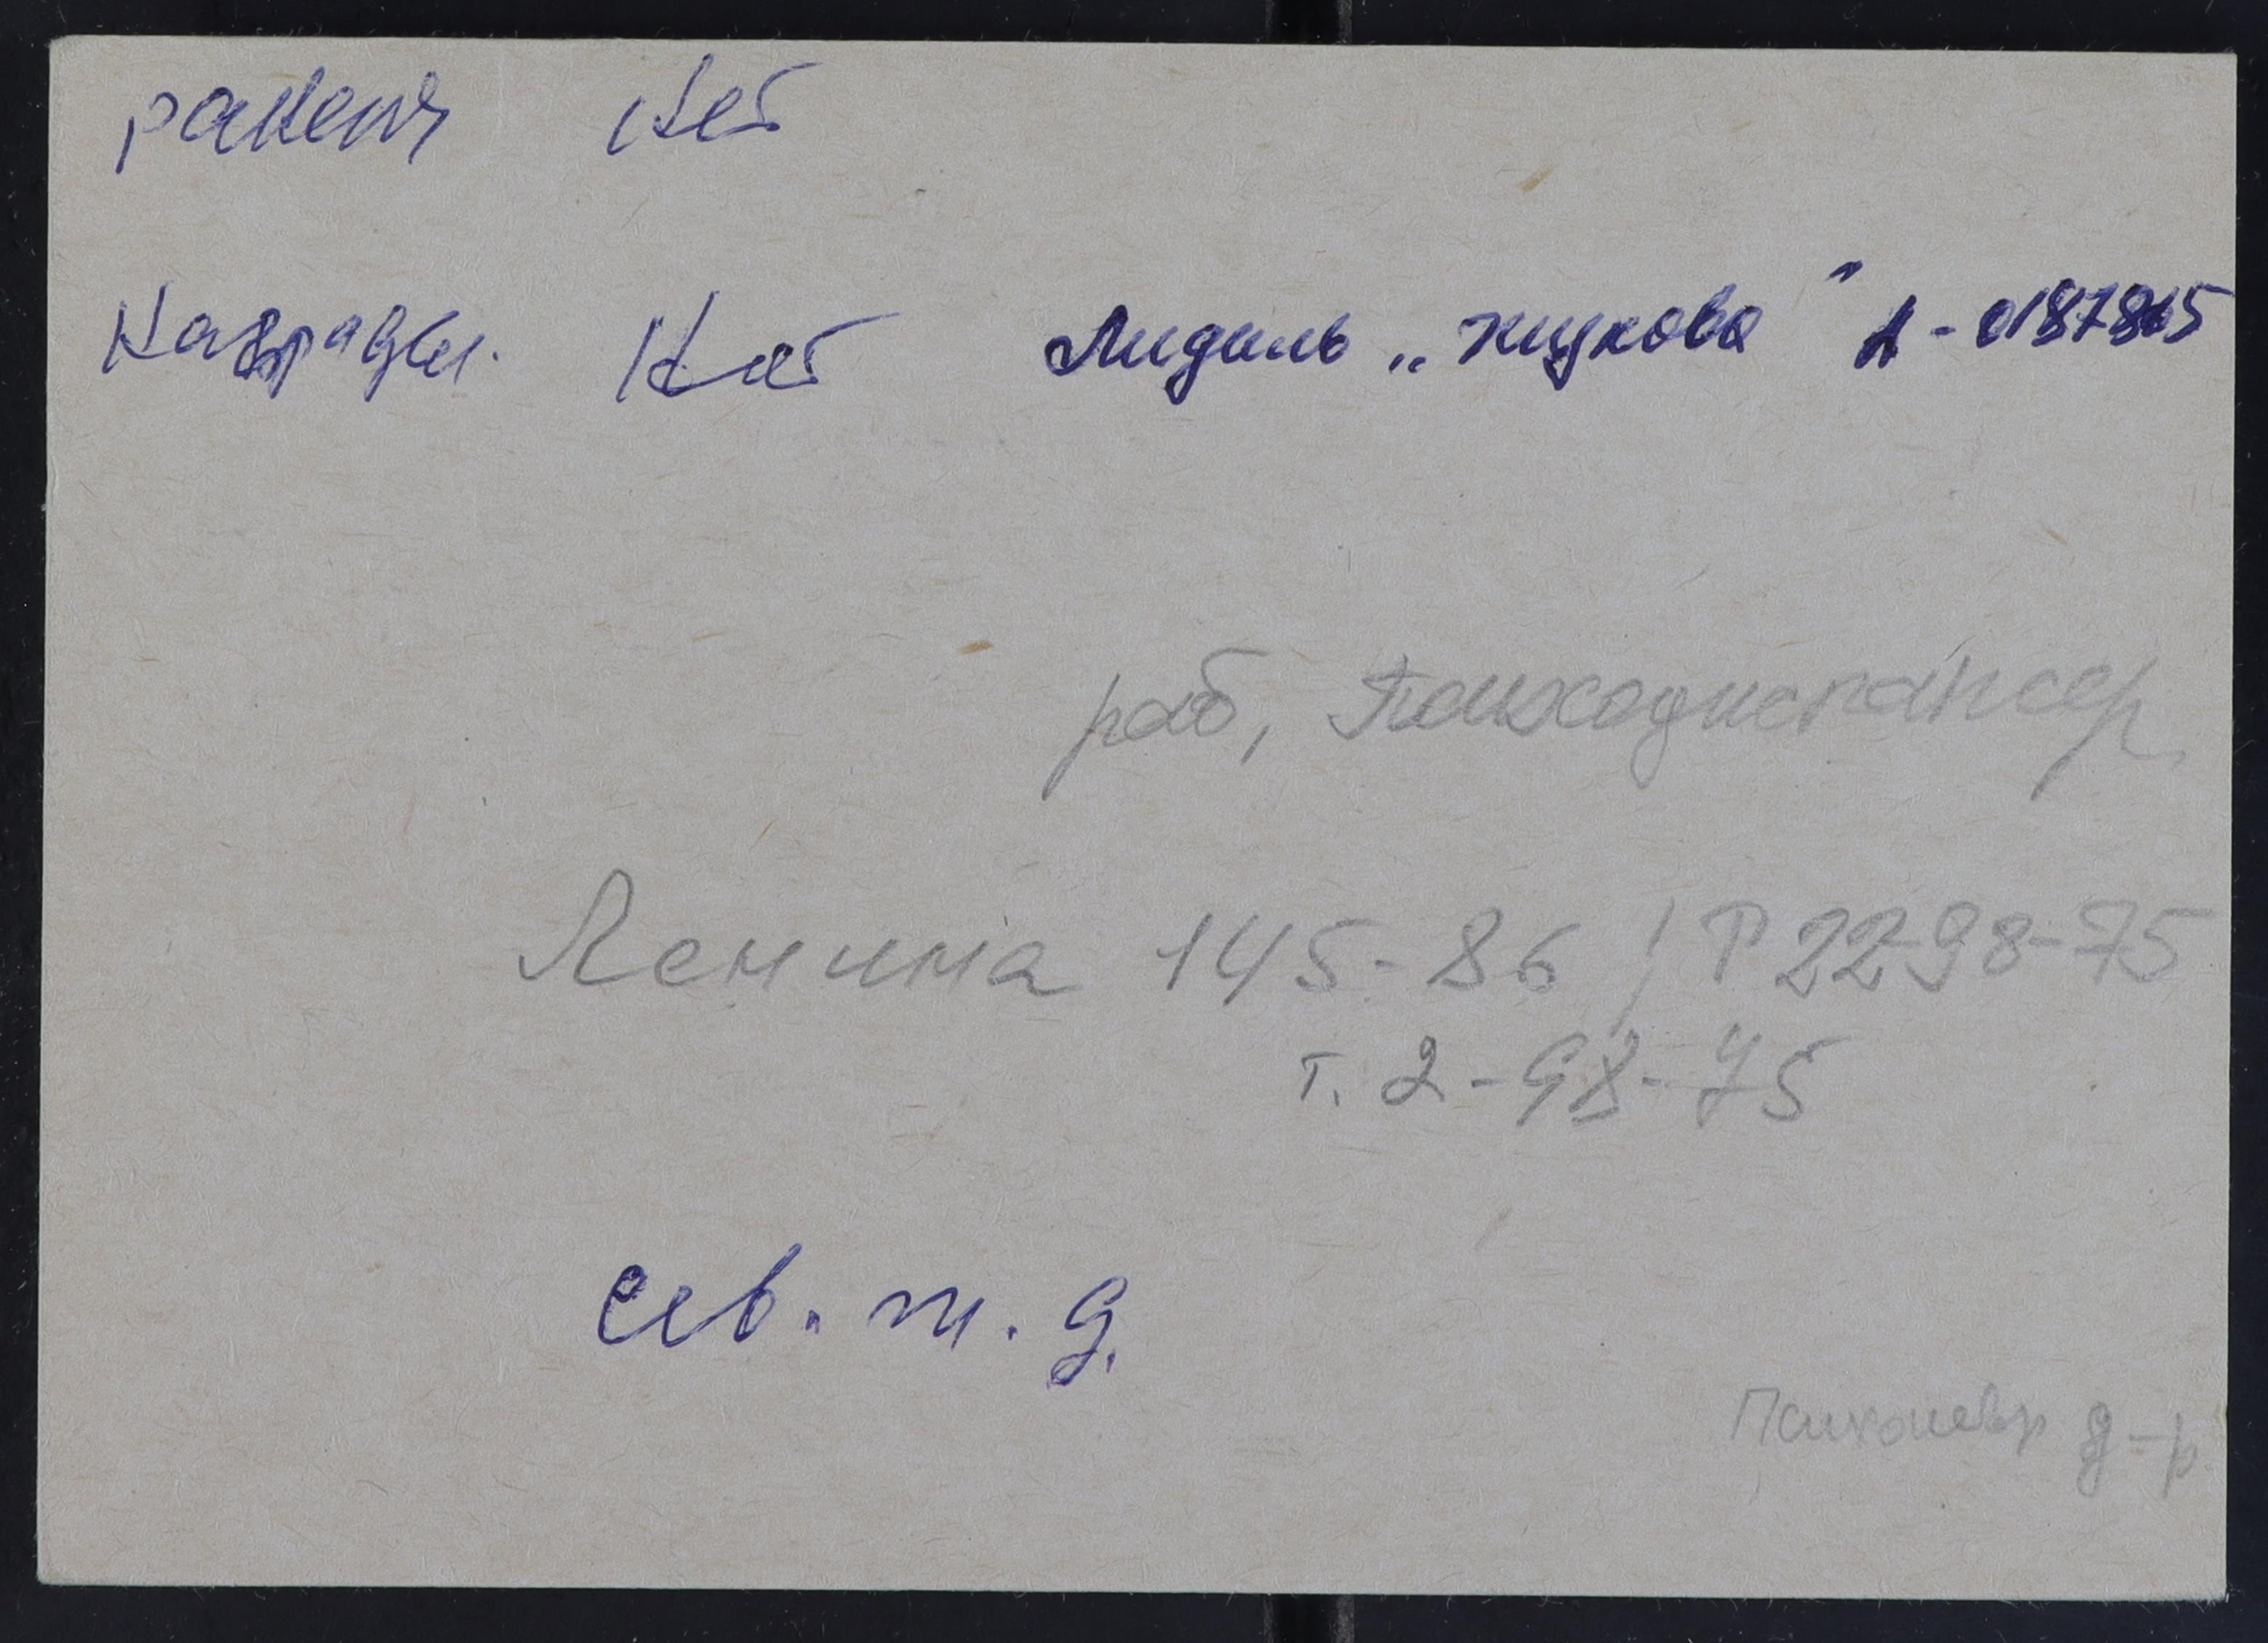 ранения нет
Награды. Нет Медаль „Жукова" А-0187865
раб, Психодиспансер
Ленина 145-86 / Р 2298-75
т. 2-98-75
св. т. д.
Психоневр д-р